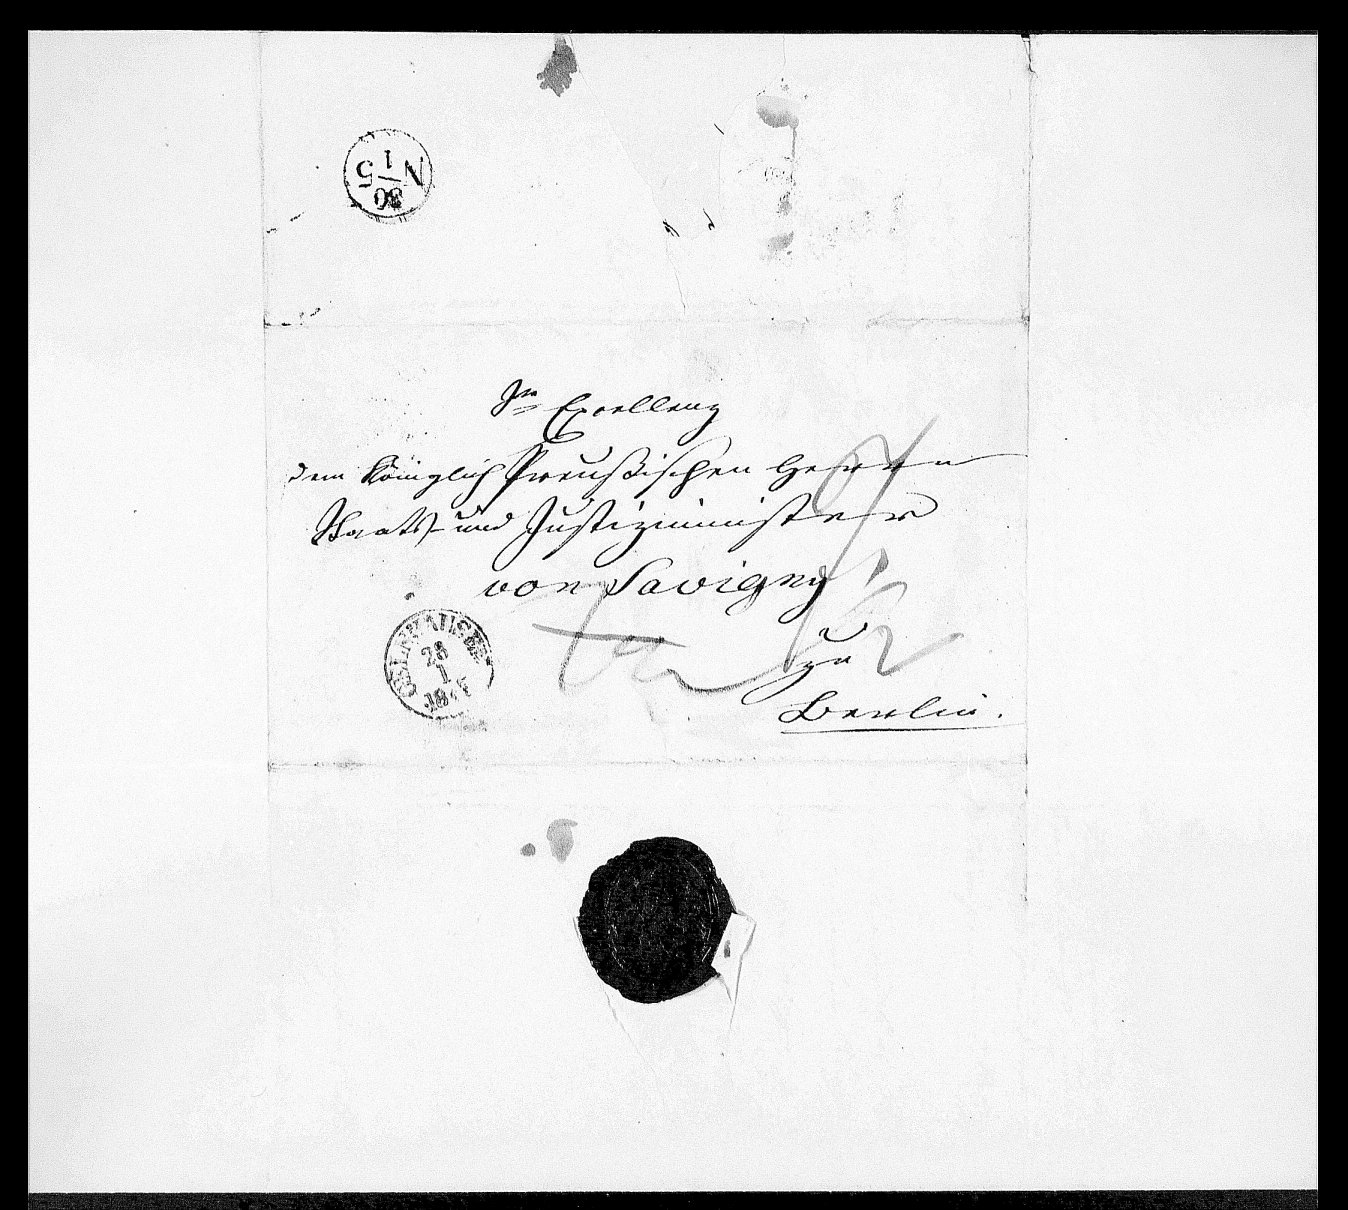 N 1 5
30
Sr Excellenz
dem Königlich Preußischen Herrn
Staats- und Justizminister
von Savigny
zu
Berlin.
GELNHAUSEN
28
1